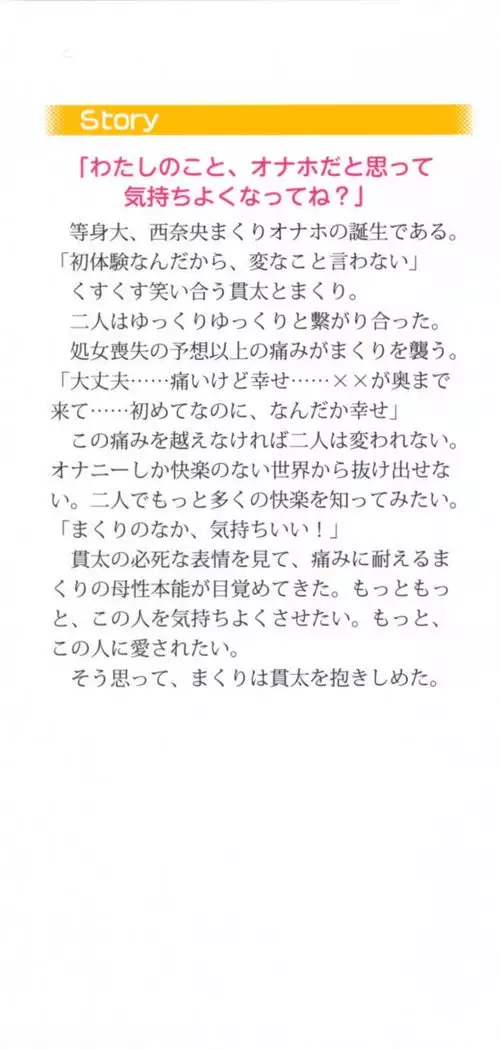 Story
「わたしのこと、オナホだと思って
気持ちよくなってね？」
等身大、西奈央まくりオナホの誕生である。
「初体験なんだから、変なこと言わない」
くすくす笑い合う貫太とまくり。
二人はゆっくりゆっくりと繋がり合った。
処女喪失の予想以上の痛みがまくりを襲う。
「大丈夫……痛いけど幸せ……××が奥まで
来て……初めてなのに、なんだか幸せ」
この痛みを越えなければ二人は変われない。
オナニーしか快楽のない世界から抜け出せな
い。二人でもっと多くの快楽を知ってみたい。
「まくりのなか、気持ちいい！」
貫太の必死な表情を見て、痛みに耐えるま
くりの母性本能が目覚めてきた。もっともっ
と、この人を気持ちよくさせたい。もっと、
この人に愛されたい。
そう思って、まくりは貫太を抱きしめた。